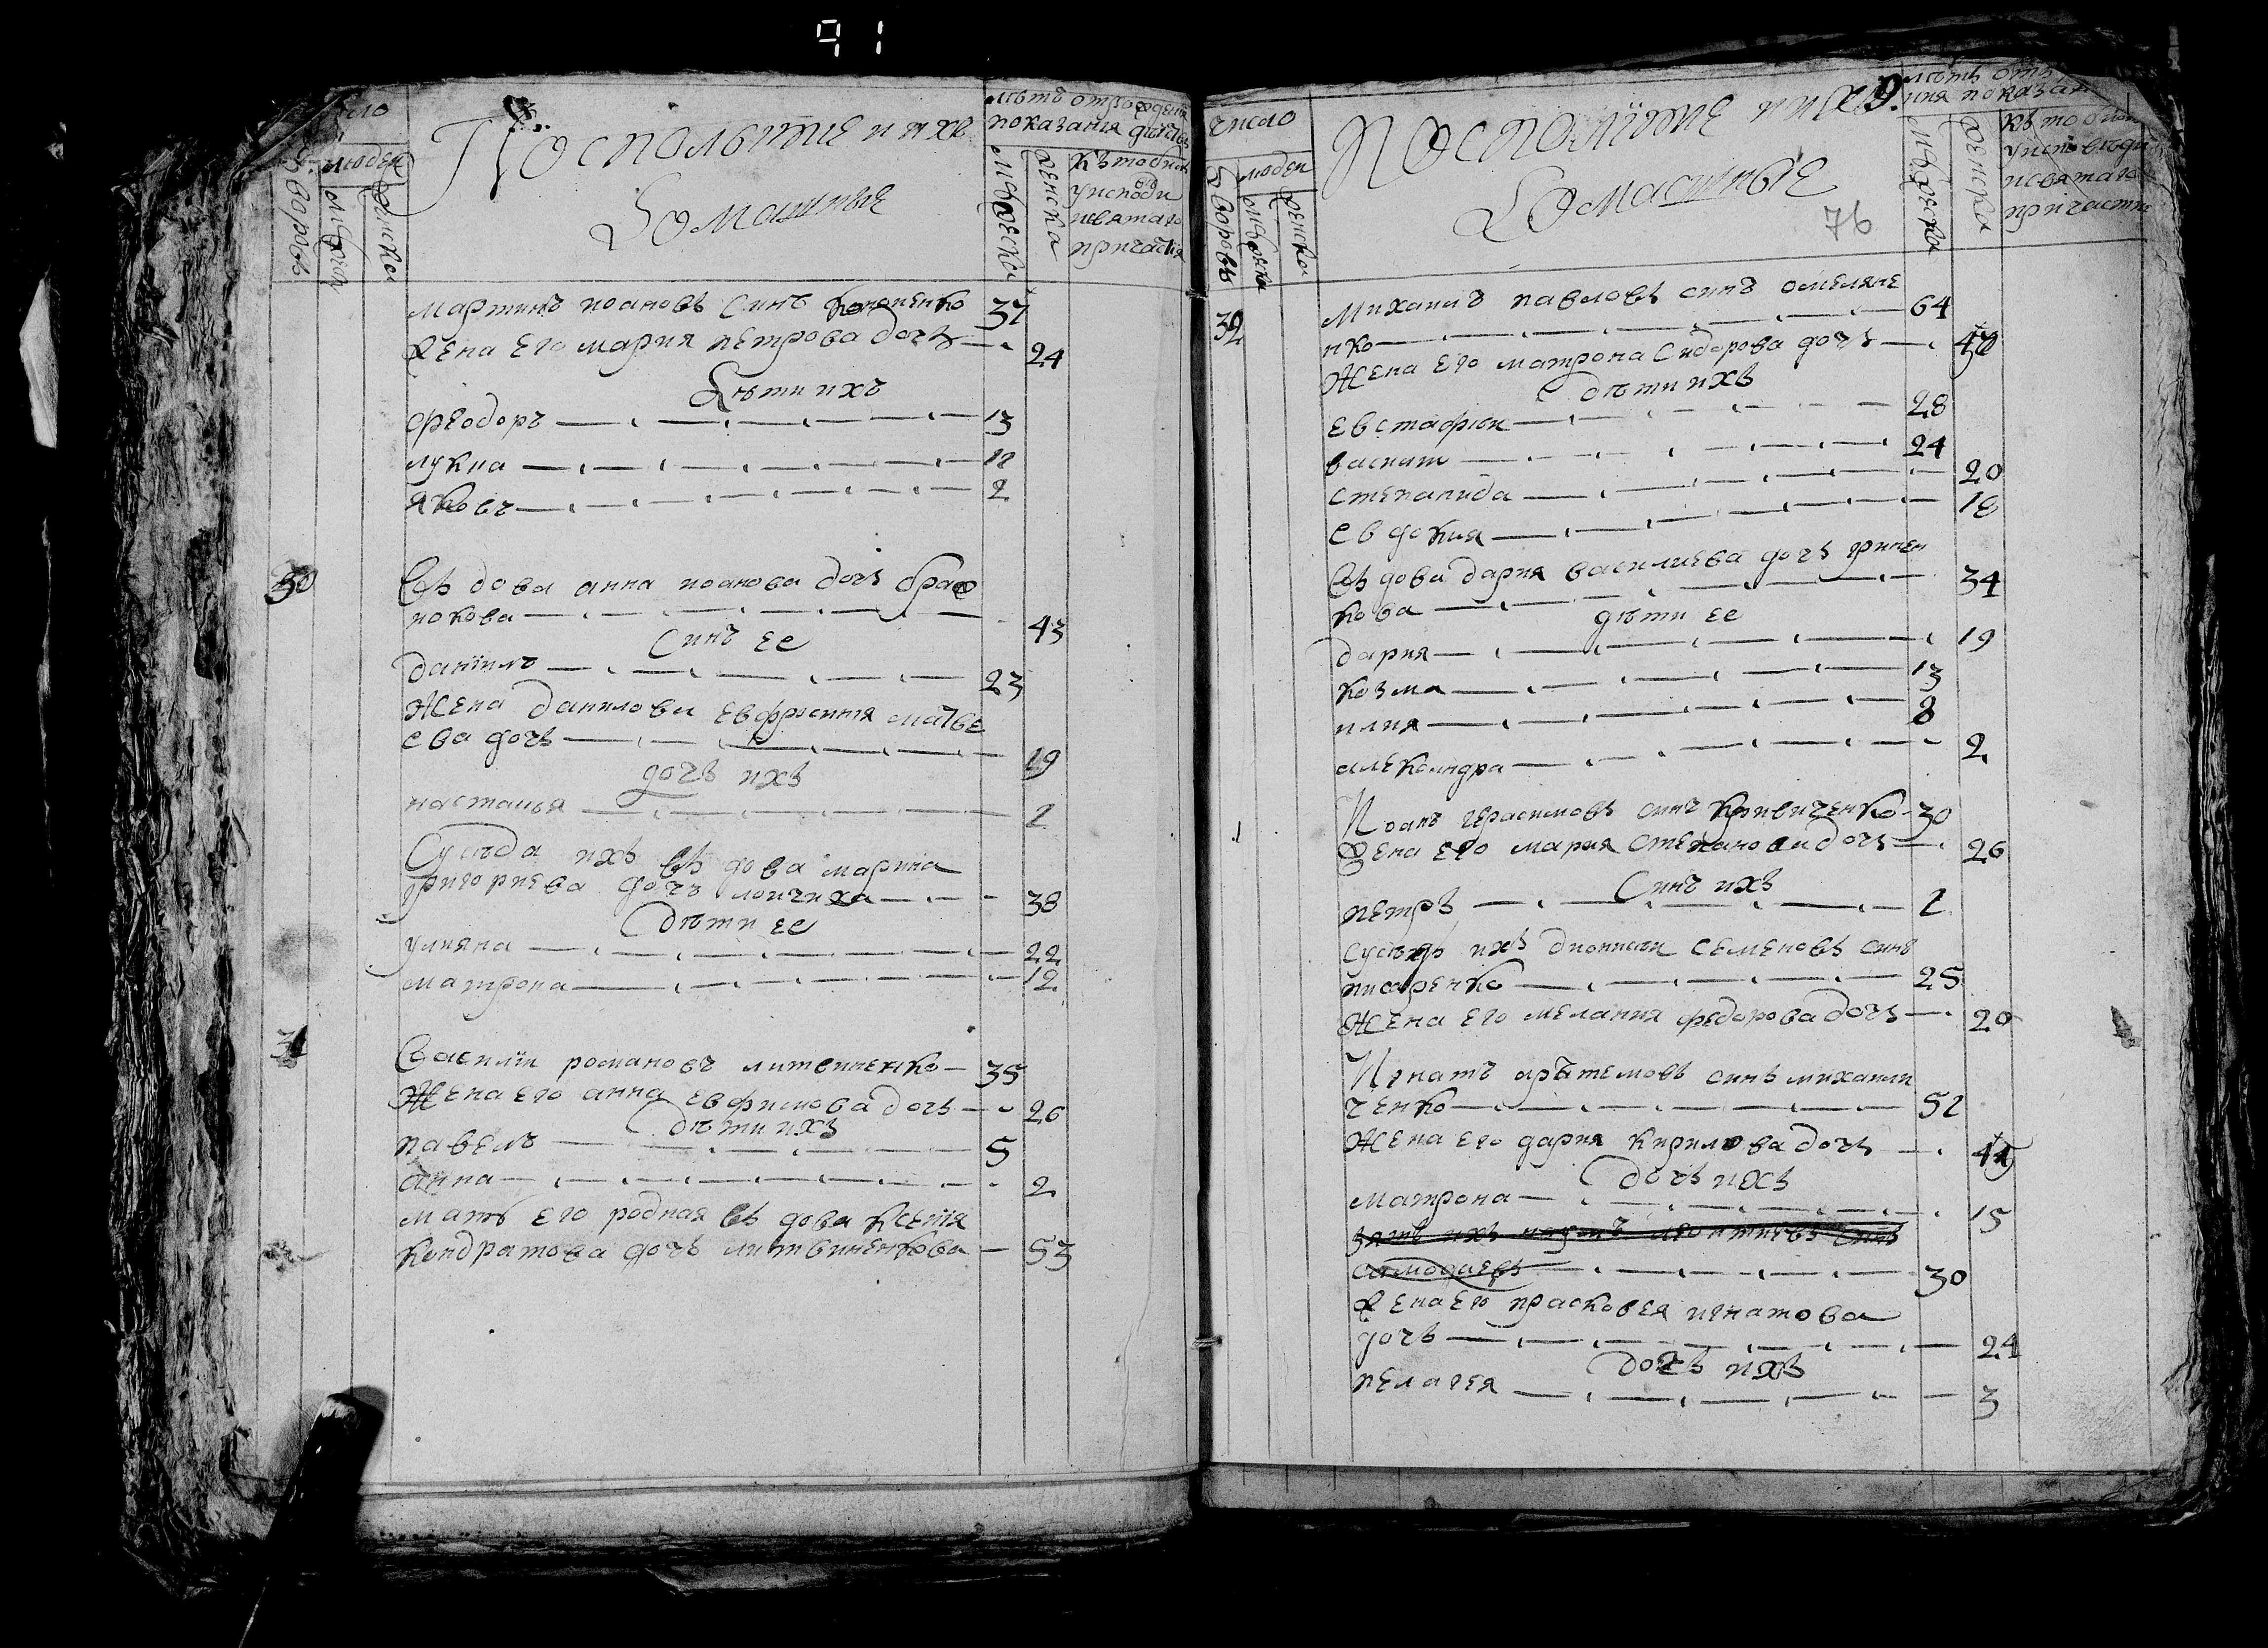 91
число
людеи
дворовъ
мужеск
женска
Посполитие и ихъ
домашние
лѣтъ от рожденія
показания дѣиствъ
мужеска
женска
кто былъ
у исповѣди
и святаго
причастія
мартинъ иоановъ синъ 37
жена его мария петрова дочь 24
дѣти ихъ
феодоръ 13
лукиа 12
яковъ 2
30
въдова анна иоанова дочь
43
синъ ее
даниилъ 23
жена данилова евфросиния матве
ева дочь 19
дочъ ихъ
настасья 2
Сусѣда ихъ въдова марина
григориева дочъ 38
дѣти ее
улияна 22
матрона 12
31
Василіи романовъ литвиненко 35
жена его анна евфимова дочъ 26
дѣти ихъ
павелъ 5
анна 2
мать его родная въдова ксения
кондратова дочъ литвиненкова 53
9.
число
людеи
дворовъ
мужеска
женска
Посполитие и ихъ
домашные
76
лѣтъ отъ
ния показан
мужеска
женска
кто былъ
у исповѣди
и святаго
причастия
32
михаилъ павловъ синъ омеляне
нко 64
жена его матрона сидорова дочъ
дѣти ихъ
евстафеи 28
василъ 24
степанида 20
евдокия 18
въдова дария василиева дочъ гринен
кова 34
дѣти ее
дария 19
козма 13
илия 8
александра 2
Иоанъ герасимовъ синъ кривиченко 30
жена его мария степанова дочъ 26
синъ ихъ
петръ 2
сусѣдъ ихъ дионисии семеновъ синъ
писаренко 25
жена его мелания федорова дочъ 20
Игнатъ артемовъ синъ михаили
ченко 52
жена его дария кирилова дочъ
дочъ ихъ
матрона 15
зять ихъ наумъ леонтиевъ синъ
30
жена его прасковея игнатова
дочъ 24
дочъ ихъ
пелагея 3